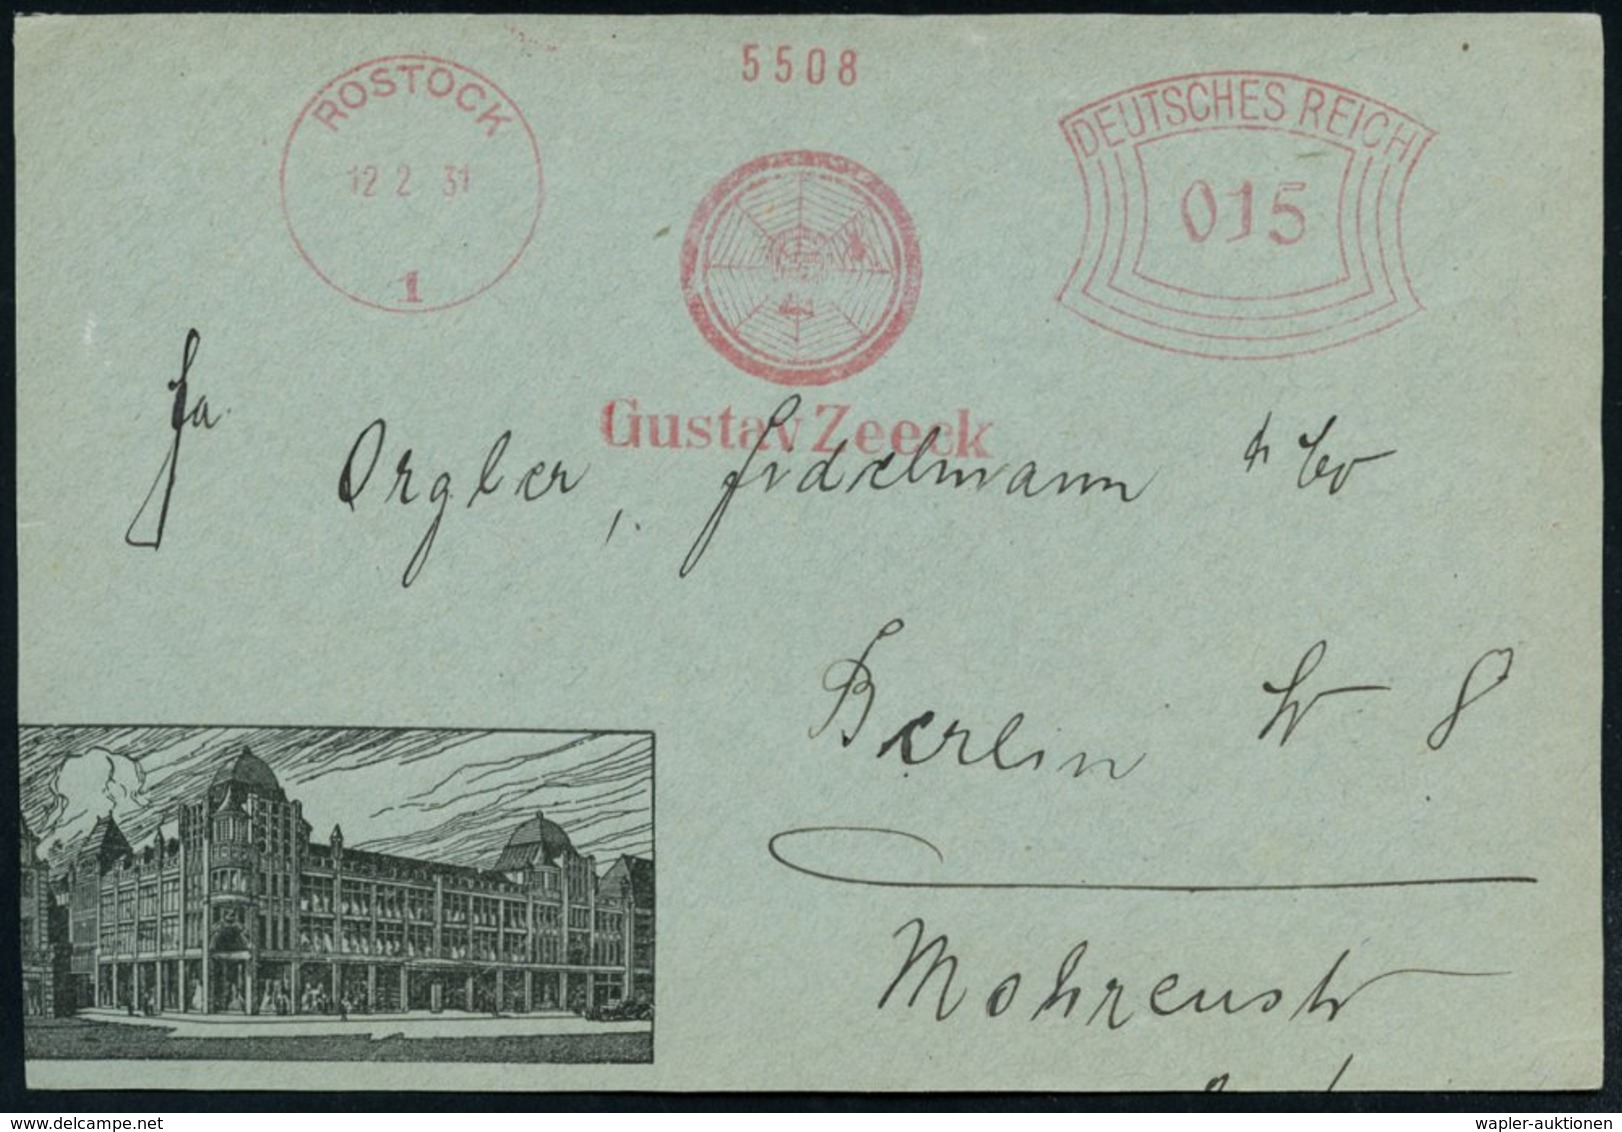 5508
ROSTOCK
12.2.31
1
DEUTSCHES REICH
015
Gustav Zeeck
Fa.
Orgler, Fidelmann & Co
Berlin W 8
Mohrenstr
wapler-auktionen